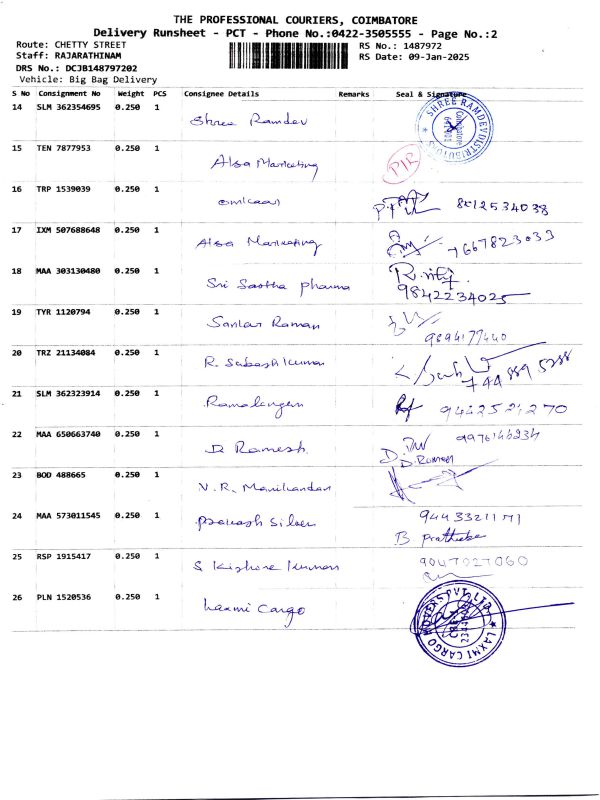 THE PROFESSIONAL COURIERS, COIMBATORE
Delivery Runsheet - PCT - Phone No.:0422-3505555 - Page No.:2
Route: CHETTY STREET
RS No.: 1487972
Staff: RAJARATHINAM
RS Date: 09-Jan-2025
DRS No.: DCJB148797202
Vehicle: Big Bag Delivery
S No Consignment No Weight PCS Consignee Details Remarks Seal & Signature
14 SLM 362354695 0.250 1 Shree Ramdev
SHREE RAMDEV DISTRIBUTORS
15 TEN 7877953 0.250 1 Alsa Marketing
16 TRP 1539039 0.250 1 omkaar
17 IXM 507688648 0.250 1 Alsa Marketing 7667823033
18 MAA 303130480 0.250 1 Sri Sastha pharma
9842234025
19 TYR 1120794 0.250 1 Sankar Raman
9894177440
20 TRZ 21134084 0.250 1 R. Subash Kumar
21 SLM 362323914 0.250 1 Ramalingam 9442521270
22 MAA 650663740 0.250 1 D Ramesh
D. Ramesh
23 BOD 488665 0.250 1 V.R. Manikandan
24 MAA 573011545 0.250 1 Prakash Silver
B Prathiba
25 RSP 1915417 0.250 1 S Kishore Kumar 9047027060
26 PLN 1520536 0.250 1 Laxmi Cargo
LAXMI CARGO MOVERS PVT. LTD.